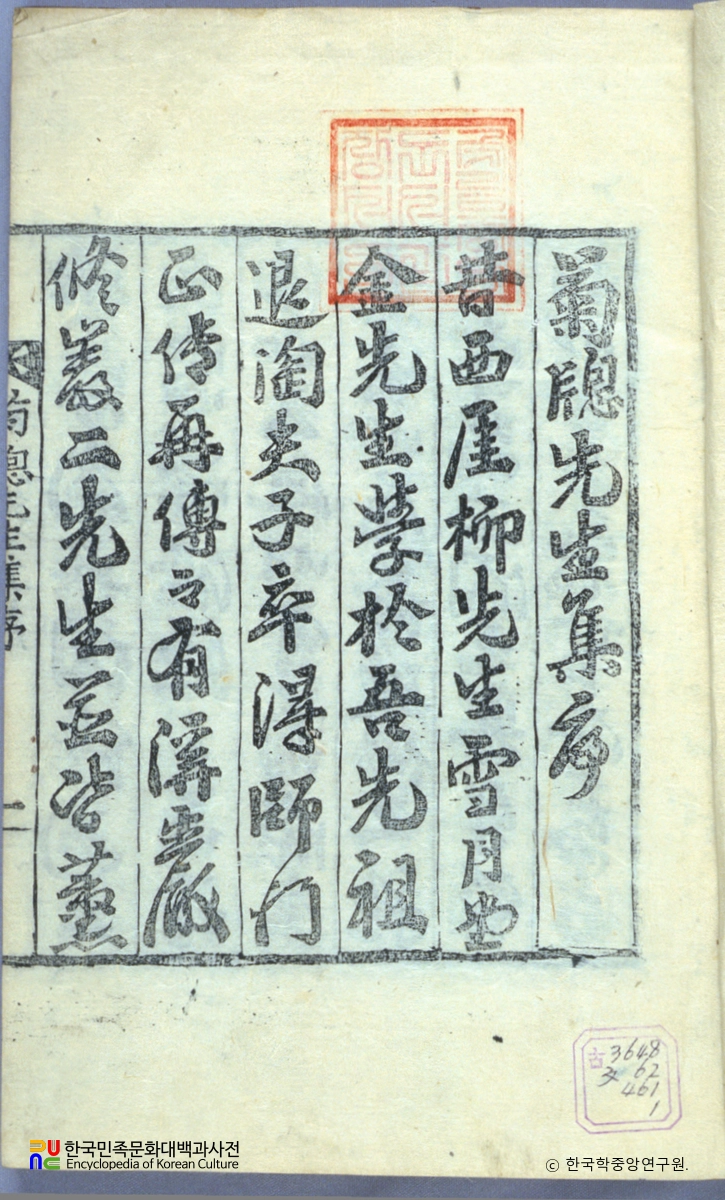 菊牕先生集序
昔西厓柳先生雪月堂
金先生學於吾先祖
退陶夫子卒得師門
正傳再傳之有溪巖
修巖二先生並皆薰
菊牕先生集序
一
古 3648
文 62
461
1
한국민족문화대백과사전
Encyclopedia of Korean Culture
ⓒ 한국학중앙연구원.